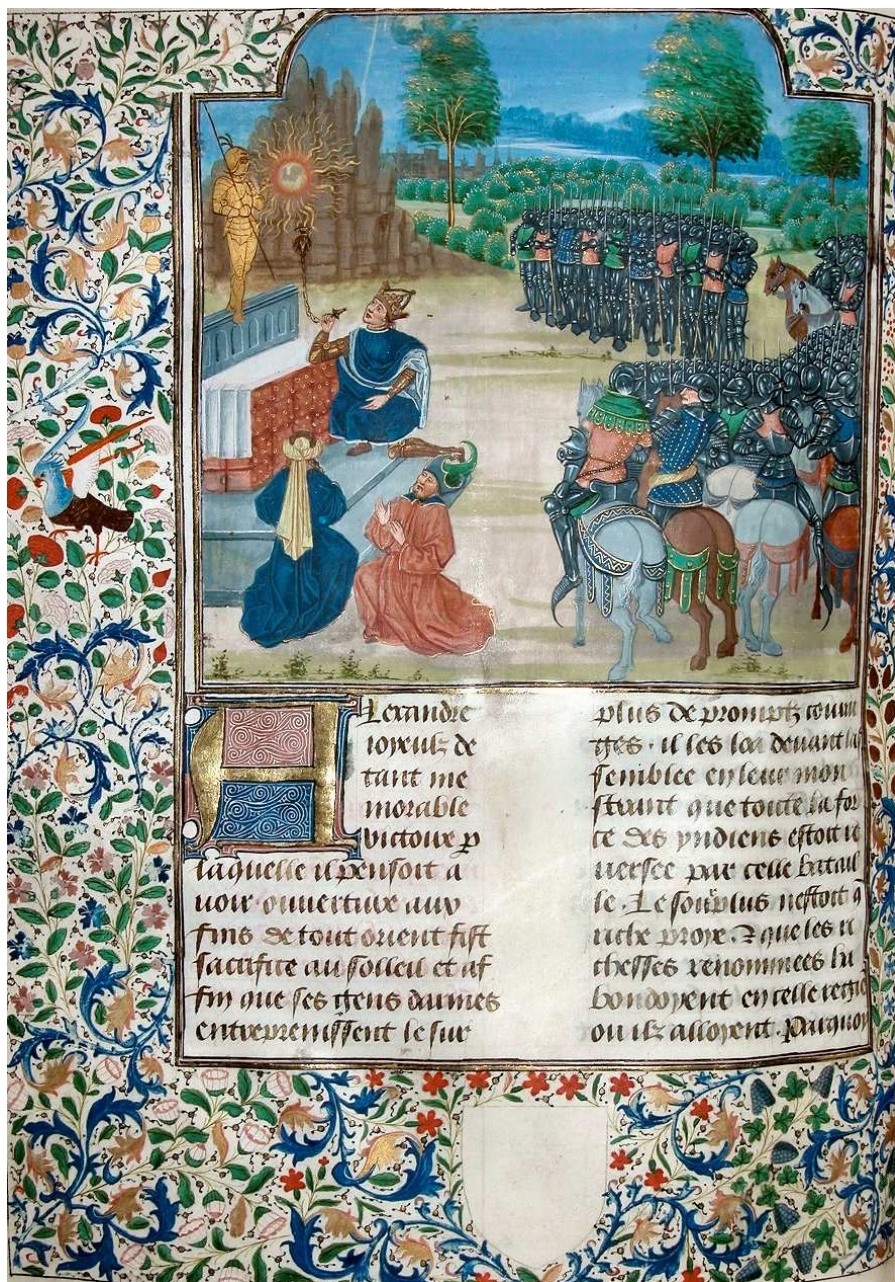 Alexandre
ioyeulz de
tant me
morable
victoire p
laquelle il pensoit a
uoir ouuerture aux
fins de tout orient fist
sacrifice au solleil et af
fin que ses gens darmes
entreprenissent le sur
plus de promptz coura
ges . il les loa deuant las
semblee en leur mon
strant que toute la for
ce des yndiens estoit re
uersee par celle batail
le . Le sourplus nestoit q
riche proye . ⁊ que les ri
chesses renommees ha
bondoyent en celle regio
ou ilz alloyent . Parquoy